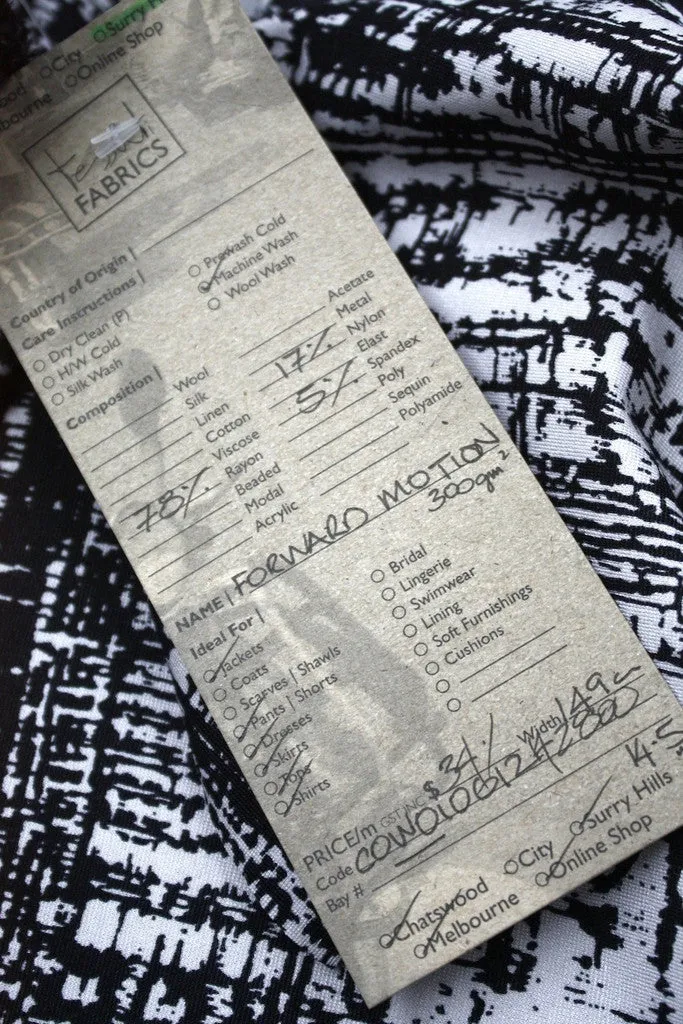 Surry H
City
ood
Online Shop
bourne
FABRICS
Country of Origin |
Care Instructions |
Prewash Cold
Dry Clean (P)
Machine Wash
H/W Cold
Wool Wash
Silk Wash
Composition |
Wool
Acetate
Silk
Metal
Linen
17% Nylon
Cotton
Elast
Viscose
5% Spandex
78% Rayon
Poly
Beaded
Sequin
Modal
Polyamide
Acrylic
NAME | FORWARD MOTION
300gm²
Ideal For |
Jackets
Bridal
Coats
Lingerie
Scarves | Shawls
Swimwear
Pants | Shorts
Lining
Dresses
Soft Furnishings
Skirts
Cushions
Tops
Shirts
PRICE/m GST INC $34/ Width 149
Code
Bay #
14.5
Chatswood
City
Surry Hills
Melbourne
Online Shop